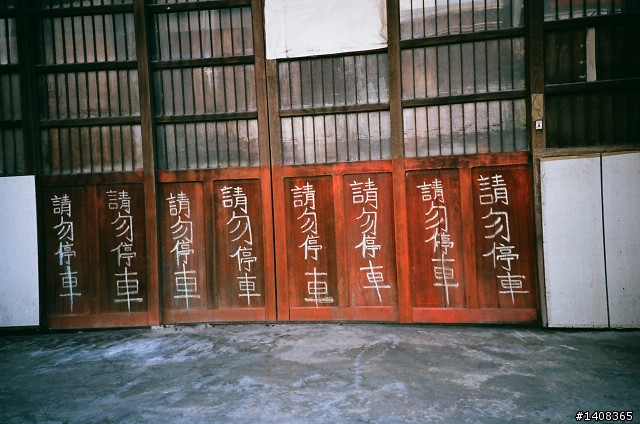 請勿停車
請勿停車
請勿停車
請勿停車
請勿停車
請勿停車
請勿停車
請勿停車
#1408365